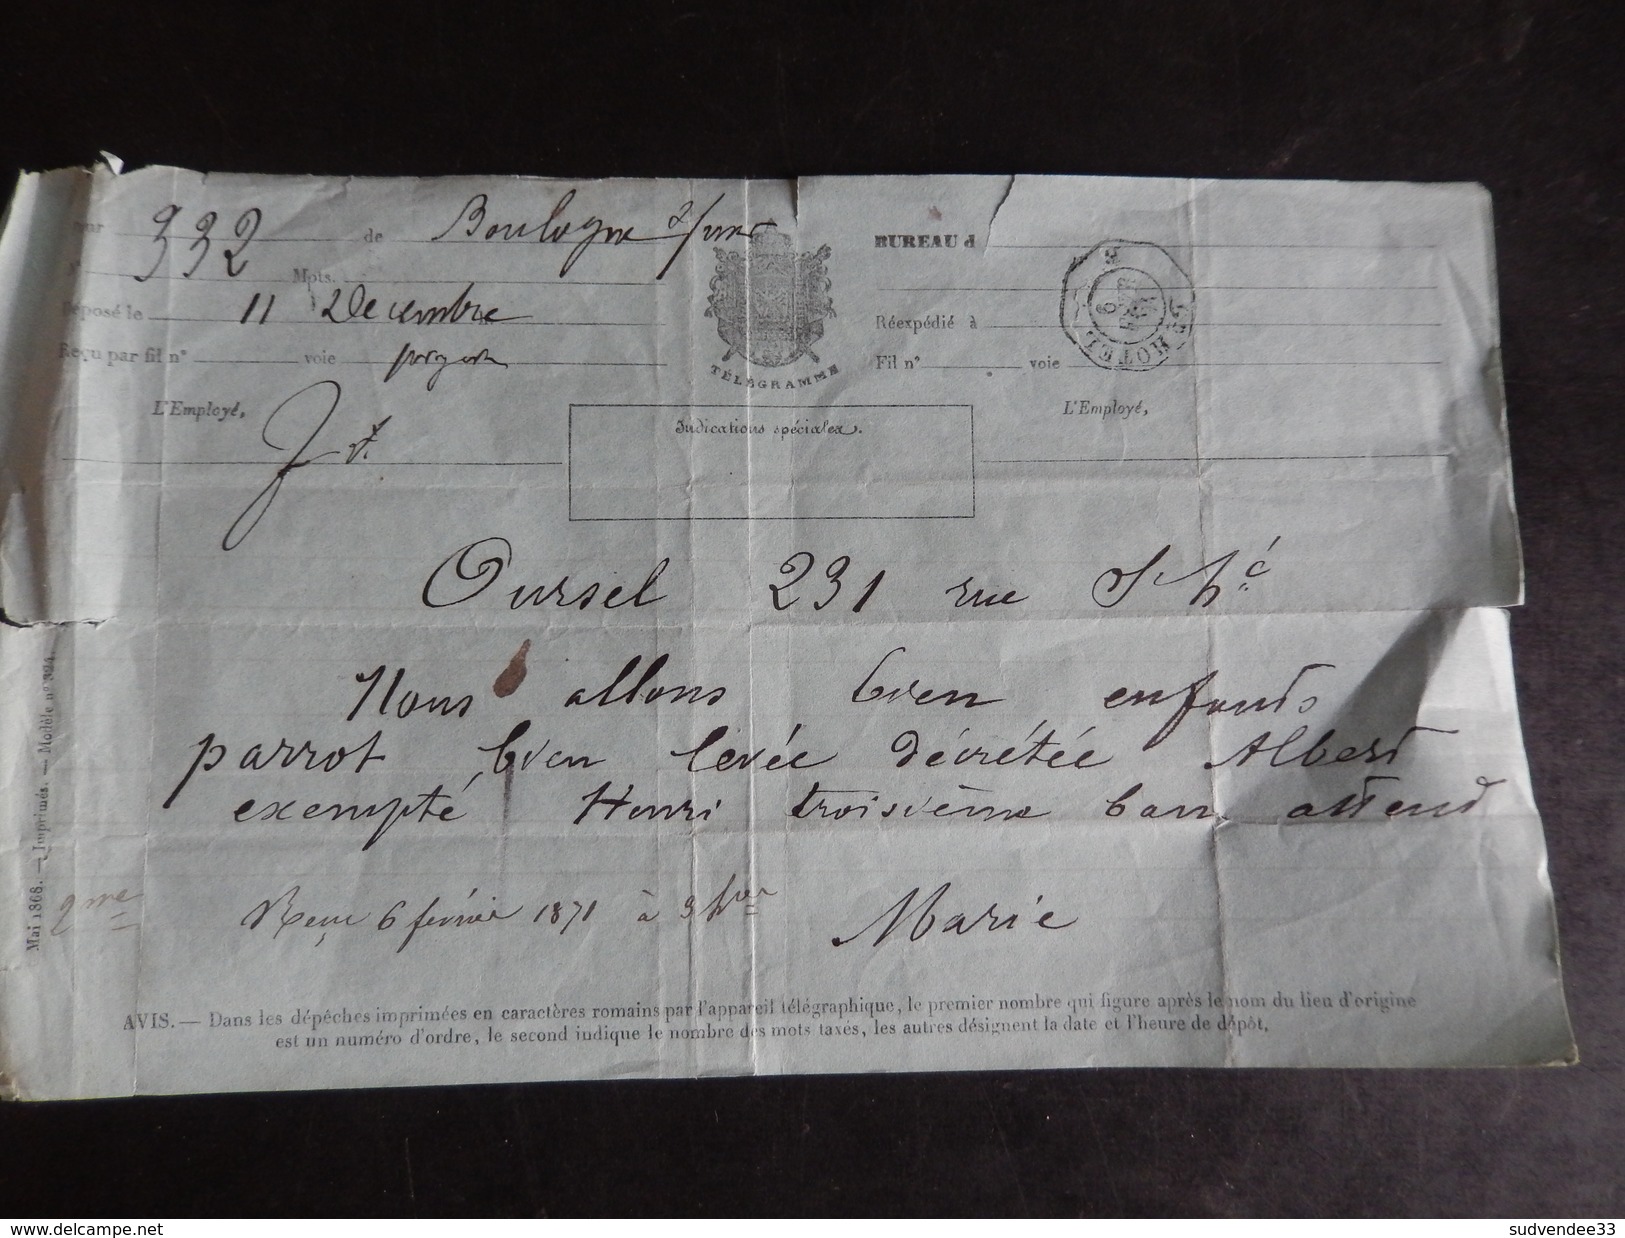 Pour 332 de Boulogne s/mer
N° Mots.
Déposé le 11 Décembre
Reçu par fil n° voie pigeon
L'Employé,
TÉLÉGRAMME
BUREAU d
Réexpédié à
Fil n° voie
L'Employé,
HOTEL
6
Indications spéciales.
Oursel 231 rue St hé
Nous allons bien enfants
parrot bien levée décrétée Albert
exempté Henri troisième ban attend
Marie
Reçu 6 février 1871 à 3 hres
2me
Mai 1868. — Imprimés. — Modèle n° 324.
AVIS. — Dans les dépêches imprimées en caractères romains par l'appareil télégraphique, le premier nombre qui figure après le nom du lieu d'origine
est un numéro d'ordre, le second indique le nombre des mots taxés, les autres désignent la date et l'heure de dépôt.
www.delcampe.net
sudvendee33